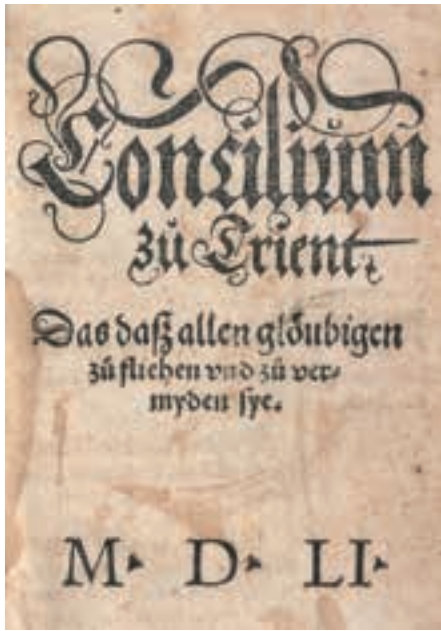 Concilium
zů Trient.
Das daß allen glöubigen
zů fliehen vnd zů ver⸗
myden sye.
M. D. LI.